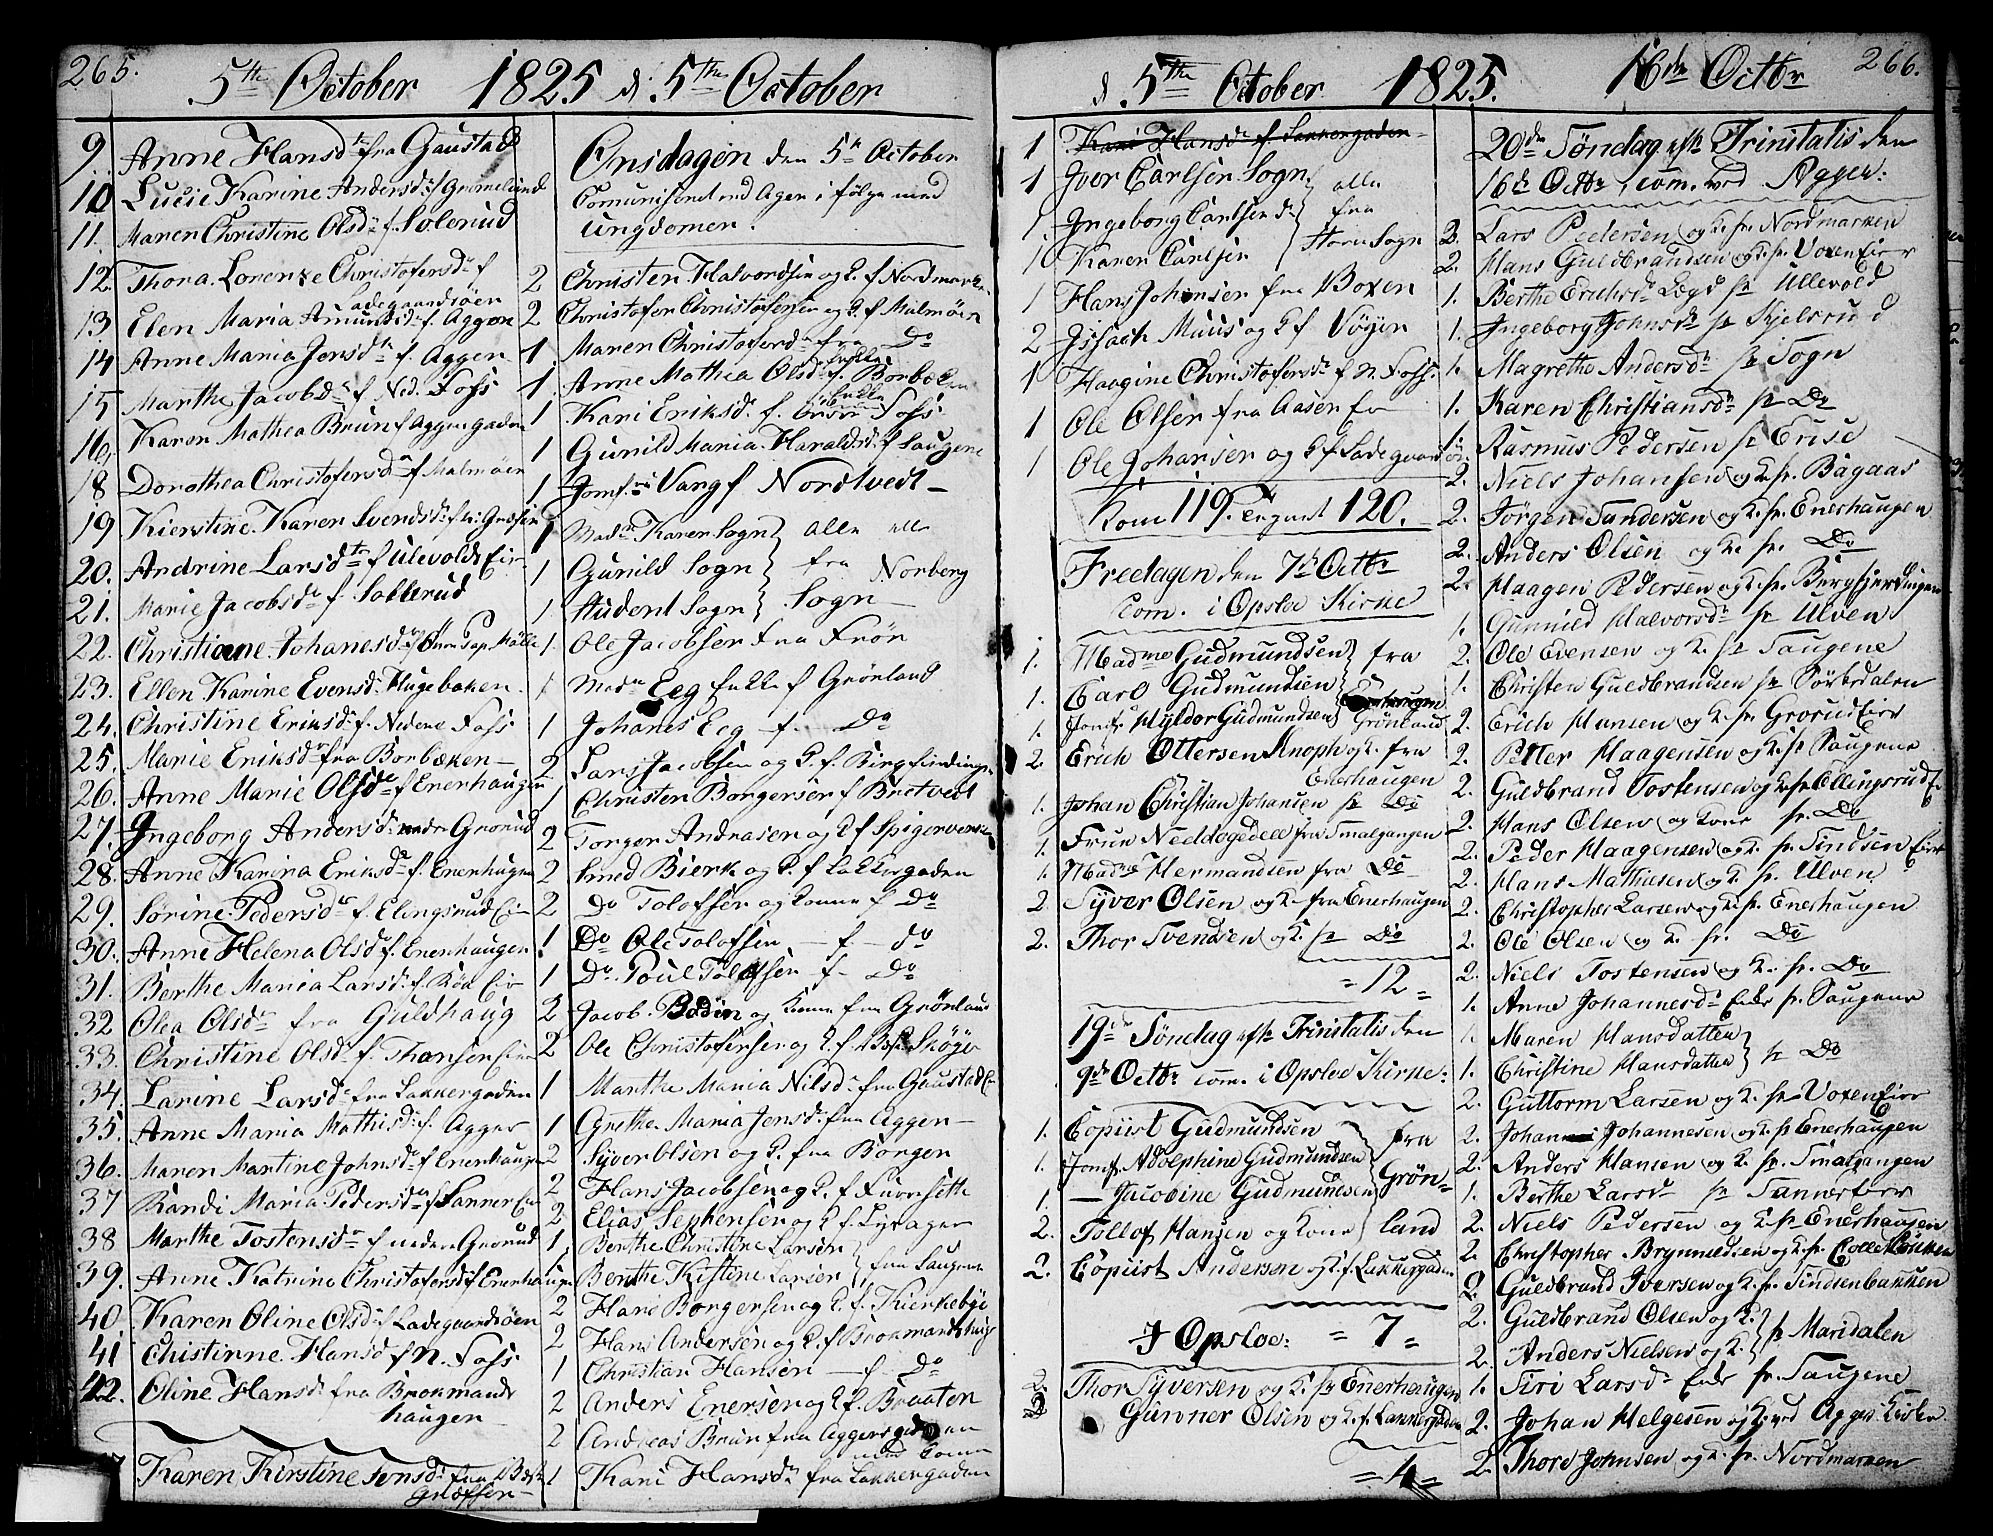 265.
5te October 1825 d. 5te October
9. Anne Hansdr fra Gaustad
10 Lucie Karine Andersdr f Grimelund
11. Maren Christine Olsdr f. Solerud
12. Thora Lorenze Christofersdr f
Ladegaardsöen
13. Elen Maria Amundsdr f. Agger
14 Anne Maria Jensdr f. Agger
15 Marthe Jacobsdr f Ned. Foss
16 Karen Mathea Brun f Aggersgaden
18 Dorothea Christofersdr f Malmöen
19 Kierstine Karen Svendsdr f
20. Andrine Larsdtr f Ulevolds Eir
21. Marie Jacobsdr f Sollerud
22. Christiane Johanesdr f
23. Ellen Karine Evensdr Hugebaken
24. Christine Eriksdr f. Nedene Foss
25. Marie Eriksdr fra Borbæken
26. Anne Marie Olsdr f Enerhaugen
27. Ingeborg Andersdr nedre Grorud
28. Anne Karina Eriksdr f. Enerhugen
29. Sörine Pedersdr f. Elengsrud Eir
30. Anne Helena Olsdr f. Enerhaugen
31. Berthe Maria Larsdr f. Röa Eir
32 Olea Olsdr fra Guldhaug
33. Christine Olsdr f. Thonsen Eir
34. Larine Larsdr fra Lakkergaden
35. Anne Maria Mathisdr f. Agger
36. Maren Martine Johnsdr f Enerhaugen
37 Randi Maria Pedersdr f Sanner Eir
38 Marthe Tostensdr f neden Grorud
39. Anne Katrine Christofersdr f Enerhaugen
40 Karen Oline Olsdr f Ladegaardsöen
41 Chistinne Hansdr f N. Foss
42. Oline Hansdr fra Brokmands
haugen
Karen Kirstine Jensdr fra
Græssen
Onsdagen den 5te October
Comuniseret ved Ager i fölge med
Ungdomen.
2 Christen Halvordsen og K. f Nordmarken
2 Christofer Christofersen og K. f Malmöen
1 Maren Christofersdr fra Do
1. Anne Mathea Olsdr f. Borbækn
1 Kari Eriksdr f. Foss
1 Gunild Maria Haraldsdr f Saugene
1 Jomf. Vang f Nordtvedt
1 Madm Karen Sogn alle
1 Gunild Sogn fra Norberg
1. Student Sogn Sogn
1. Ole Jacobsen fra Frön
1 Madm Eeg Enke f Grönland
1 Johanes Eeg f. Do
2 Lars Jacobsen og K. f. Birgfierdingen
1 Christen Borgersen f Bretvedt
2 Torger Andrasen og K f Spigerverket
2 Smed Bierk og K. f Lakkergaden
2 Do Tolofsen og Konne f Do
1 Do Ole Tolofsen f Do
1 Do Poul Tolofsen f Do
2 Jacob Bodin og Konne fra Grönland
2 Ole Christofersen og K f Sköyen
1 Marthe Maria Nilsdr fra Gaustad Eir
1 Grethe Maria Jensdr fra Agger
2 Syver Olsen og K. fra Borgen
2 Hans Jacobsen og K. f Furusette
2. Elias Sephensen og K f.
1 Berthe Christine Larsen
1 Berthe Kistine Larsen fra Saugene
2 Hans Borgersen og K. f. Kierkebye
2 Hans Andersen og K f Brokmandshaug
1 Christian Hansen f Do
2 Anders Enersen og K f. Braaten
2 Andreas Brun fra Aggersgaden
med Konne
1 Kari Hansdr fra Lakkergaden
d 5te October 1825. 16de Octbr 266.
1 Kari Hansdr f Lakkergaden
1 Iver Carlsen Sogn alle
1. Ingeborg Carlsendr fra
1 Karen Carlsen Store Sogn
1 Hans Johansen fra Voxen
2 Isach Muus og K f Vöyen
1 Haagine Christofersdr f N. Foss.
1 Ole Olsen fra Aasen Eir
1 Ole Johansen og K f Ladegaardsöen
Kom 119. Tegnet 120.
Fredagen den 7de Octbr
Com. i Opsloe Kirke
1. Madme Gudmundsen fra
1. Carl Gudmundsen
1. Jomfr Hyldor Gudmundsen Grönland
2 Erich Ottersen Knoph og K. fra
Enerhaugen
1. Johan Christian Johansen fr Do
1. Fruw Neeldegedell fra Smalgangen
1. Madme Hermandsen fra Do
2. Syver Olsen og K. fra Enerhaugen
2. Thor Svendsen og K. fr Do
= 12 =
19de Söndag efter Trinitatis den
9de Octbr com. i Opsloe Kirke:
1. Copiist Gudmundsen fra
1. Jomf. Adolphine Gudmundsen Grön=
1. — Jacobine Gudmundsen
2. Tollof Hansen og Kone land
2. Copiist Andersen og K f. Lakkergaden
I Opsloe: = 7 =
2. Thor Syversen og K. fr Enerhaugen
2 Gunner Olsen og K. f. Lakkergaden
= 4 =
20de Söndag efter Trinitatis den
16de Octbr com. ved Agger:
2. Lars Pedersen og K. fr. Nordmarken
2. Hans Guldbrandsen og K. fr. Voxen Eier
1. Berthe Erichsdr Lægd fr Ullevold
1. Ingeborg Johnsdr fr Kjelsrud
1. Magrethe Andersdr fr Sogn
1. Karen Christiansdr fr Do
1. Rasmus Pedersen fr Ense
2. Niels Johansen og K. fr. Bagaas
2. Jörgen Sandersen og K. fr. Enerhaugen
2. Anders Olsen og K. fr. Do
2. Haagen Pedersen og K. fr Bergfjerdingen
1. Gunnild Halvorsdr fr Ulven
2. Ole Evensen og K. fr Saugene
1. Christen Guldbrandsen fr Sörkedalen
2. Erich Hansen og K. fr. Grorud Eier
2. Petter Haagensen og K. fr Saugene
2. Guldbrand Tostensen og K. fr Ellingsrud Eir
2. Hans Olsen og Kone fr. Do
2. Peder Haagensen og K. fr Tindsen Eier
2. Hans Mathiesen og K. fr. Ulven
2. Christopher Larsen og K. fr. Enerhaugen
2. Ole Olsen og K. fr. Do
2. Niels Tostensen og K. fr. Do
1. Anne Johannesdr Enke fr. Saugene
1. Maren Hansdatter
1. Christine Hansdatter fr Do
2. Guttorm Larsen og K. fr Voxen Eier
2. Johan Johannesen og K. fr Enerhaugen
2. Anders Hansen og K. fr. Smalgangen
1. Berthe Larsdr fr Sanner Eier
2. Niels Pedersen og K. fr Enerhaugen
2. Christopher Brynnildsen og K. fr.
2 Guldbrand Iversen og K. fr. Tindsenbakken
2. Guldbrand Olsen og K.
2. Anders Nielsen og K. fr Maridalen
1. Siri Larsdr Enke fr. Saugene
2. Johan Helgesen og K. ved Agger Kirke
2. Thore Johnsen og K. fr. Nordmarken